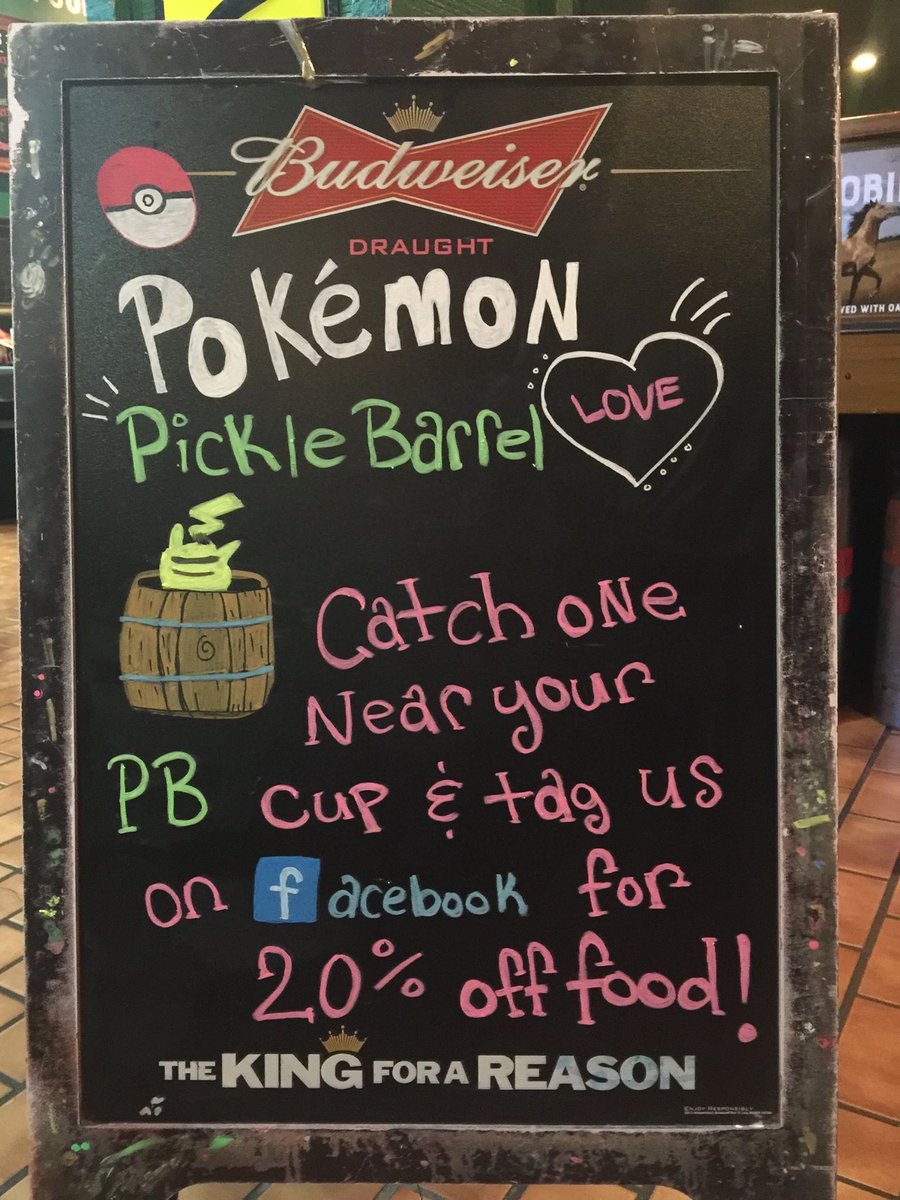 Budweiser
DRAUGHT
Pokémon
LOVE
Pickle Barrel
Catch one
Near your
PB cup & tag us
on facebook for
20% off food!
THE KING FOR A REASON
ENJOY RESPONSIBLY
OBI
WED WITH OA